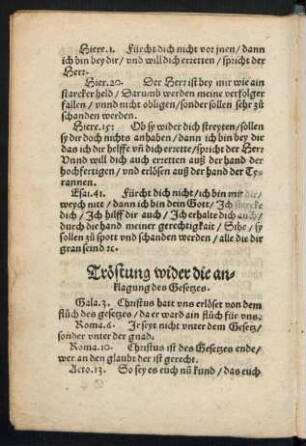 Hiere.1. Fürcht dich nicht vor jnen/dann
ich bin bey dir/vnd will dich erretten/spricht der
Herr.
Hiere.20. Der Herr ist bey mir wie ain
starcker held/Darumb werden meine verfolger
fallen/vnnd nicht obligen/sonder sollen sehr zů
schanden werden.
Hiere.15: Ob sy wider dich streyten/sollen
sy dir doch nichts anhaben/dann ich bin bey dir
das ich dir helffe vñ dich errette/spricht der Herr
Vnnd will dich auch erretten auß der hand der
hochfertigen/vnd erlösen auß der hand der Ty-
rannen.
Esai.41. Fürcht dich nicht/ich bin mit dir/
weych nitt/dann ich bin dein Gott/Ich stercke
dich/Ich hilff dir auch/Ich erhalte dich auch/
durch die hand meiner gerechtigkait/Sihe/sy
sollen zů spott vnd schanden werden/alle die dir
gran seind ꝛc.
Tröstung wider die an-
klagung des Gesetzes.
Gala.3. Christus hatt vns erlöset von dem
flůch des gesetzes/da er ward ain flůch für vns.
Roma.6. Jr seyt nicht vnter dem Gesetz/
sonder vnter der gnad.
Roma.10. Christus ist des Gesetzes ende/
wer an den glaubt der ist gerecht.
Acto.13. So sey es euch nů kund/das euch